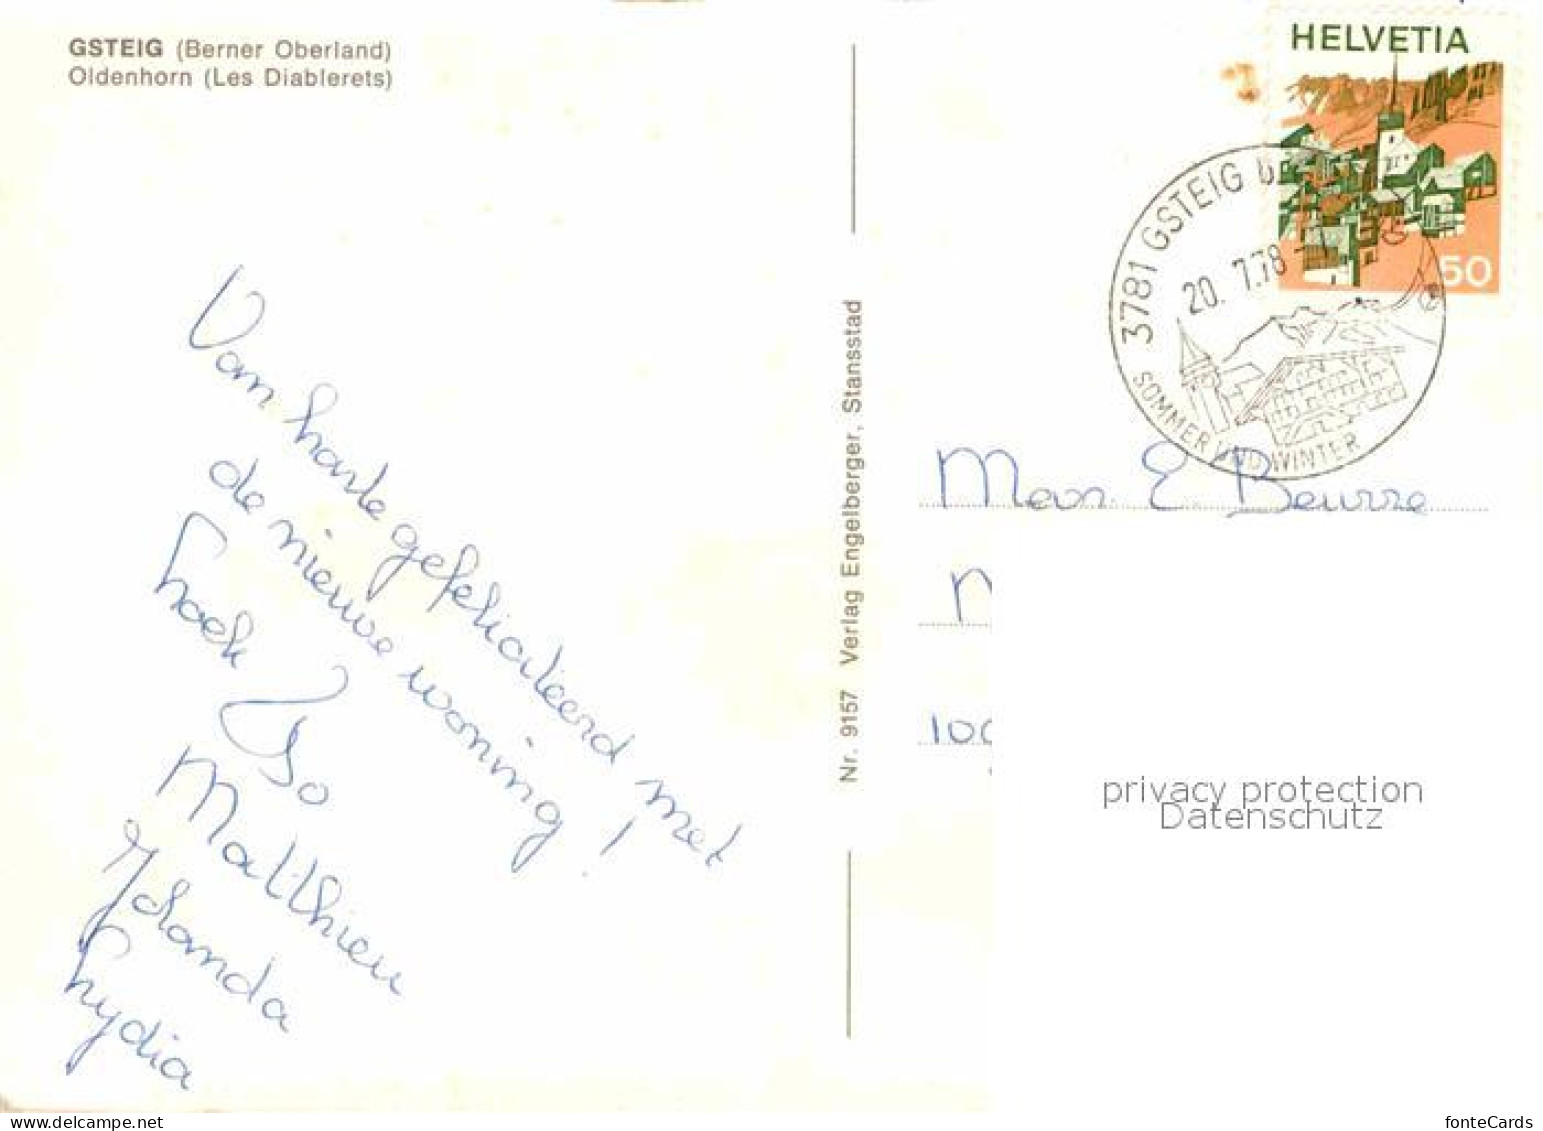 GSTEIG (Berner Oberland)
Oldenhorn (Les Diablerets)
Van harte gefeliciteerd met
de nieuwe woning!
Matthieu
Yolanda
Lydia
Nr. 9157 Verlag Engelberger, Stansstad
HELVETIA
50
3781 GSTEIG b.
20. 7.78
SOMMER UND WINTER
Mevr. E. Beurre
100
privacy protection
Datenschutz
fonteCards